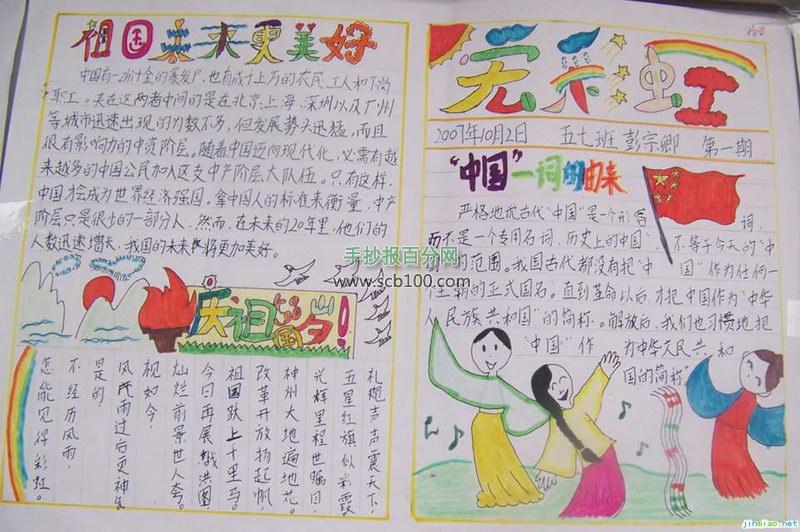 祖国未来更美好
中国有一个计全的暴发户，也有成千上万的农民工人和下岗
职工。夹在这两者中间的是在北京、上海、深圳以及广州
等城市迅速出现的为数不多，但发展势头迅猛，而且
很有影响力的中资阶层。随着中国迈向现代化，必需有越
来越多的中国公民加入这支中产阶层大队伍。只有这样，
中国才会成为世界经济强国。拿中国人的标准来衡量，中产
阶层只是很少的一部分人，然而，在未来的20年里，他们的
人数迅速增长，我国的未来将更加美好。
庆祖国58岁！
礼炮声声震天下，
五星红旗似彩霞。
光辉里程世瞩目，
神州大地遍地花。
改革开放扬起帆，
祖国跃上千里马。
今日再展鸿图
灿烂前景世人夸。
视如今，
风风雨雨过后更神气
是的，
不经历风雨，
怎能见得彩虹。
天虹
2007年10月2日 五七班 彭宗卿 第一期
“中国”一词的由来
严格地说古代“中国”是一个形容词，
而不是一个专用名词，历史上的“中国”不等于今天的“中
国”的范围。我国古代都没有把“中国”作为任何一
个王朝的正式国名。直到革命以后，才把中国作为“中华
人民族共和国”的简称。解放后，我们也习惯地把
“中国”作为中华人民共和
国的简称。
手抄报百分网
www.scb100.com
jinbiao.net